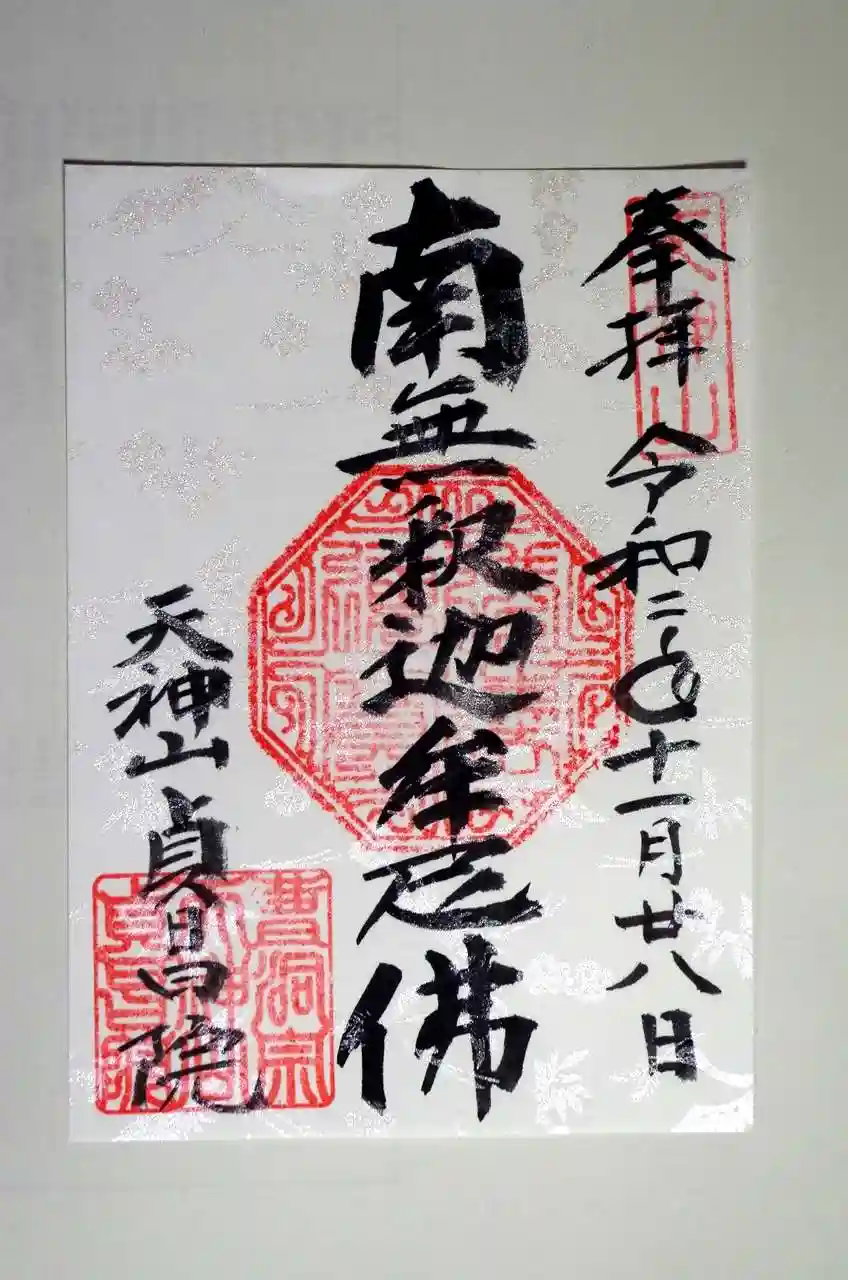 奉拝
令和二年十一月廿八日
南無釈迦牟尼佛
天神山貞昌院
天神山
曹洞宗
天神山
貞昌院